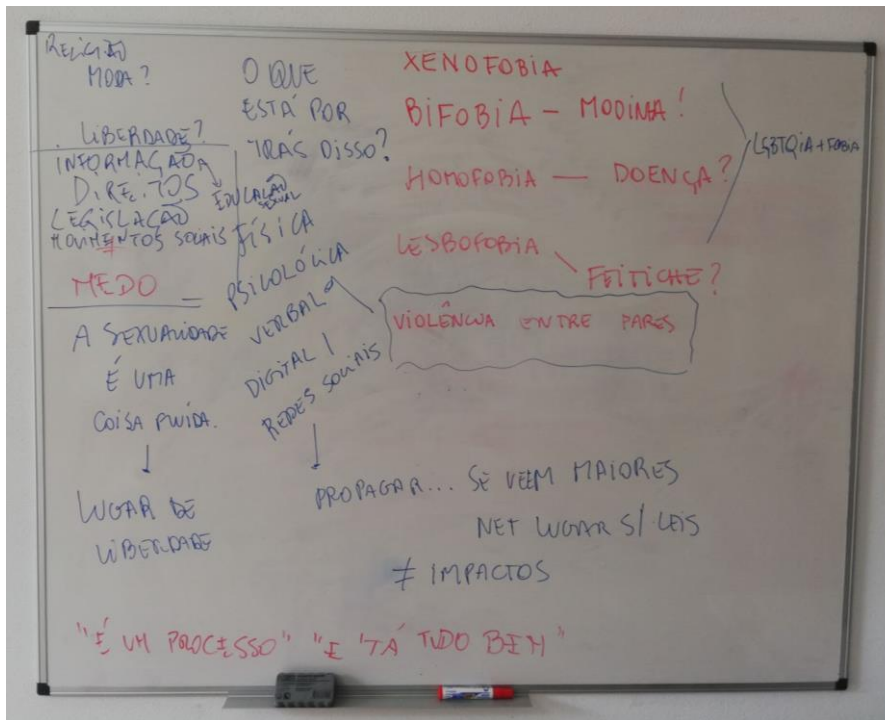 RELIGIÃO
MODA?
LIBERDADE?
INFORMAÇÃO
DIREITOS
EDUCAÇÃO
SEXUAL
LEGISLAÇÃO
MOVIMENTOS SOCIAIS
MEDO
A SEXUALIDADE
É UMA
COISA FLUÍDA.
LUGAR DE
LIBERDADE
O QUE
ESTÁ POR
TRÁS DISSO?
FÍSICA
PSICOLÓGICA
VERBAL
DIGITAL /
REDES SOCIAIS
XENOFOBIA
BIFOBIA — MODINHA!
HOMOFOBIA — DOENÇA?
LESBOFOBIA
FEITICHE?
LGBTQIA+FOBIA
VIOLÊNCIA ENTRE PARES
PROPAGAR... SE VEEM MAIORES
NET LUGAR S/ LEIS
≠ IMPACTOS
"É UM PROCESSO" "E 'TÁ TUDO BEM"